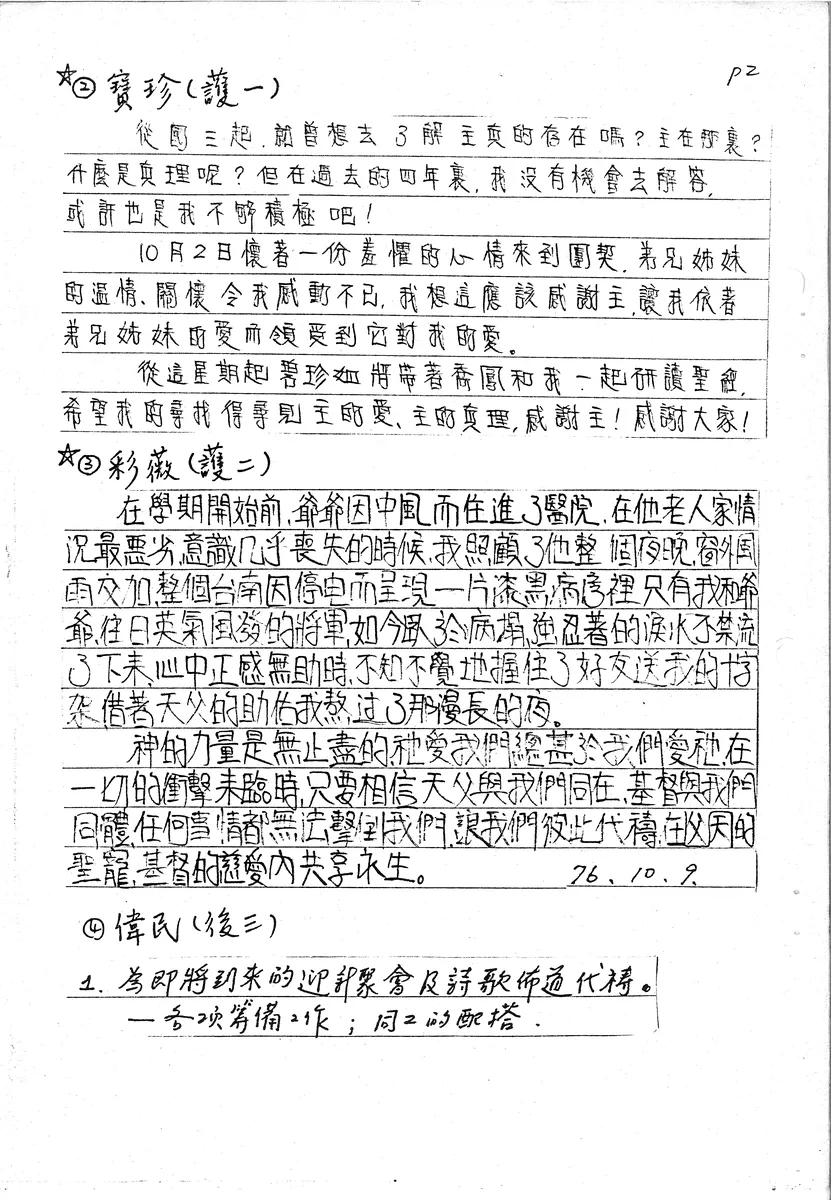 p2
☆② 寶珍(護一)
從國三起,就曾想去了解主真的存在嗎?主在那裏?
什麼是真理呢?但在過去的四年裏,我没有機會去解答,
或許也是我不够積極吧!
10月2日懷著一份羞懼的心情來到團契,弟兄姊妹
的溫情、關懷令我感動不已,我想這應該感謝主,讓我依著
弟兄姊妹的愛而領受到它對我的愛。
從這星期起碧珍姐將帶著喬鳳和我一起研讀聖經,
希望我的尋找得尋見主的愛、主的真理,感謝主!感謝大家!
☆③ 彩薇(護二)
在學期開始前,爺爺因中風而住進了醫院,在他老人家情
況最惡劣,意識几乎喪失的時候,我照顧了他整個夜晚,窗外風
雨交加,整個台南因停电而呈現一片漆黑,病房裡只有我和爺
爺,往日英氣風發的將軍,如今臥於病榻,強忍著的淚水不禁流
了下來,心中正感無助時,不知不覺地握住了好友送我的十字
架,借著天父的助佑我熬过了那漫長的夜。
神的力量是無止盡的,祂愛我們總甚於我們愛祂,在
一切的衝擊未臨時,只要相信天父與我們同在,基督與我們
同體,任何事情都無法擊倒我們,讓我們彼此代禱,在父天的
聖寵,基督的慈愛內共享永生。
76.10.9.
④ 偉民(後三)
1. 為即將到來的迎新聚會及詩歌佈道代禱。
— 各項籌備工作;同工的配搭.